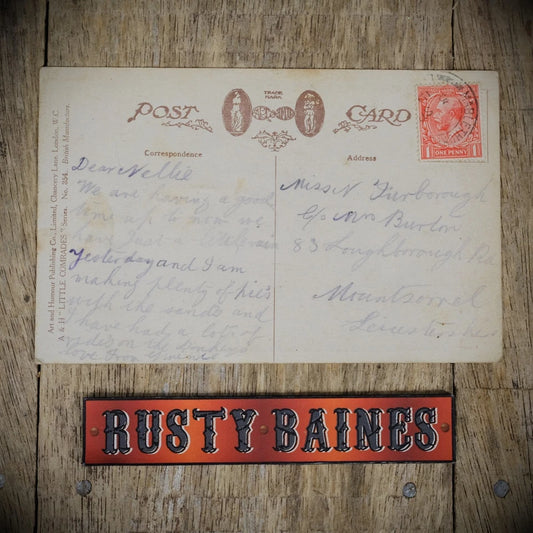 TRADE MARK
POST CARD
Correspondence
Address
Art and Humour Publishing Co., Limited, Chancery Lane, London, W.C.
A & H "LITTLE COMRADES" Series. No. 254. British Manufacture.
1 ONE PENNY 1
Dear Nellie
We are having a good
time up to now we
have just a little rain
yesterday and I am
making plenty of pie's
with the sands and
have had a lots of
rides on the donkeys
love from
Miss N
c/o Mrs Burton
83 Loughborough Rd
Mountsorrel
Leicestershire
RUSTY BAINES